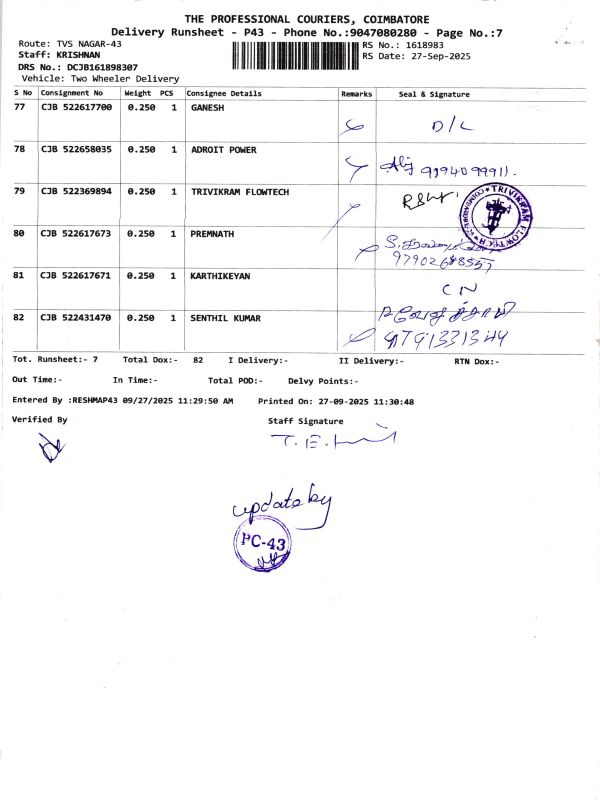 THE PROFESSIONAL COURIERS, COIMBATORE
Delivery Runsheet - P43 - Phone No.:9047080280 - Page No.:7
Route: TVS NAGAR-43 RS No.: 1618983
Staff: KRISHNAN RS Date: 27-Sep-2025
DRS No.: DCJB161898307
Vehicle: Two Wheeler Delivery
S No Consignment No Weight PCS Consignee Details Remarks Seal & Signature
77 CJB 522617700 0.250 1 GANESH
D/L
78 CJB 522658035 0.250 1 ADROIT POWER
9994099911.
79 CJB 522369894 0.250 1 TRIVIKRAM FLOWTECH
TRIVIKRAM FLOWTECH * COIMBATORE *
80 CJB 522617673 0.250 1 PREMNATH
97902688557
81 CJB 522617671 0.250 1 KARTHIKEYAN
CN
82 CJB 522431470 0.250 1 SENTHIL KUMAR
Tot. Runsheet:- 7 Total Dox:- 82 I Delivery:- II Delivery:- RTN Dox:-
Out Time:- In Time:- Total POD:- Delvy Points:-
Entered By :RESHMAP43 09/27/2025 11:29:50 AM Printed On: 27-09-2025 11:30:48
Verified By Staff Signature
update by
PC-43